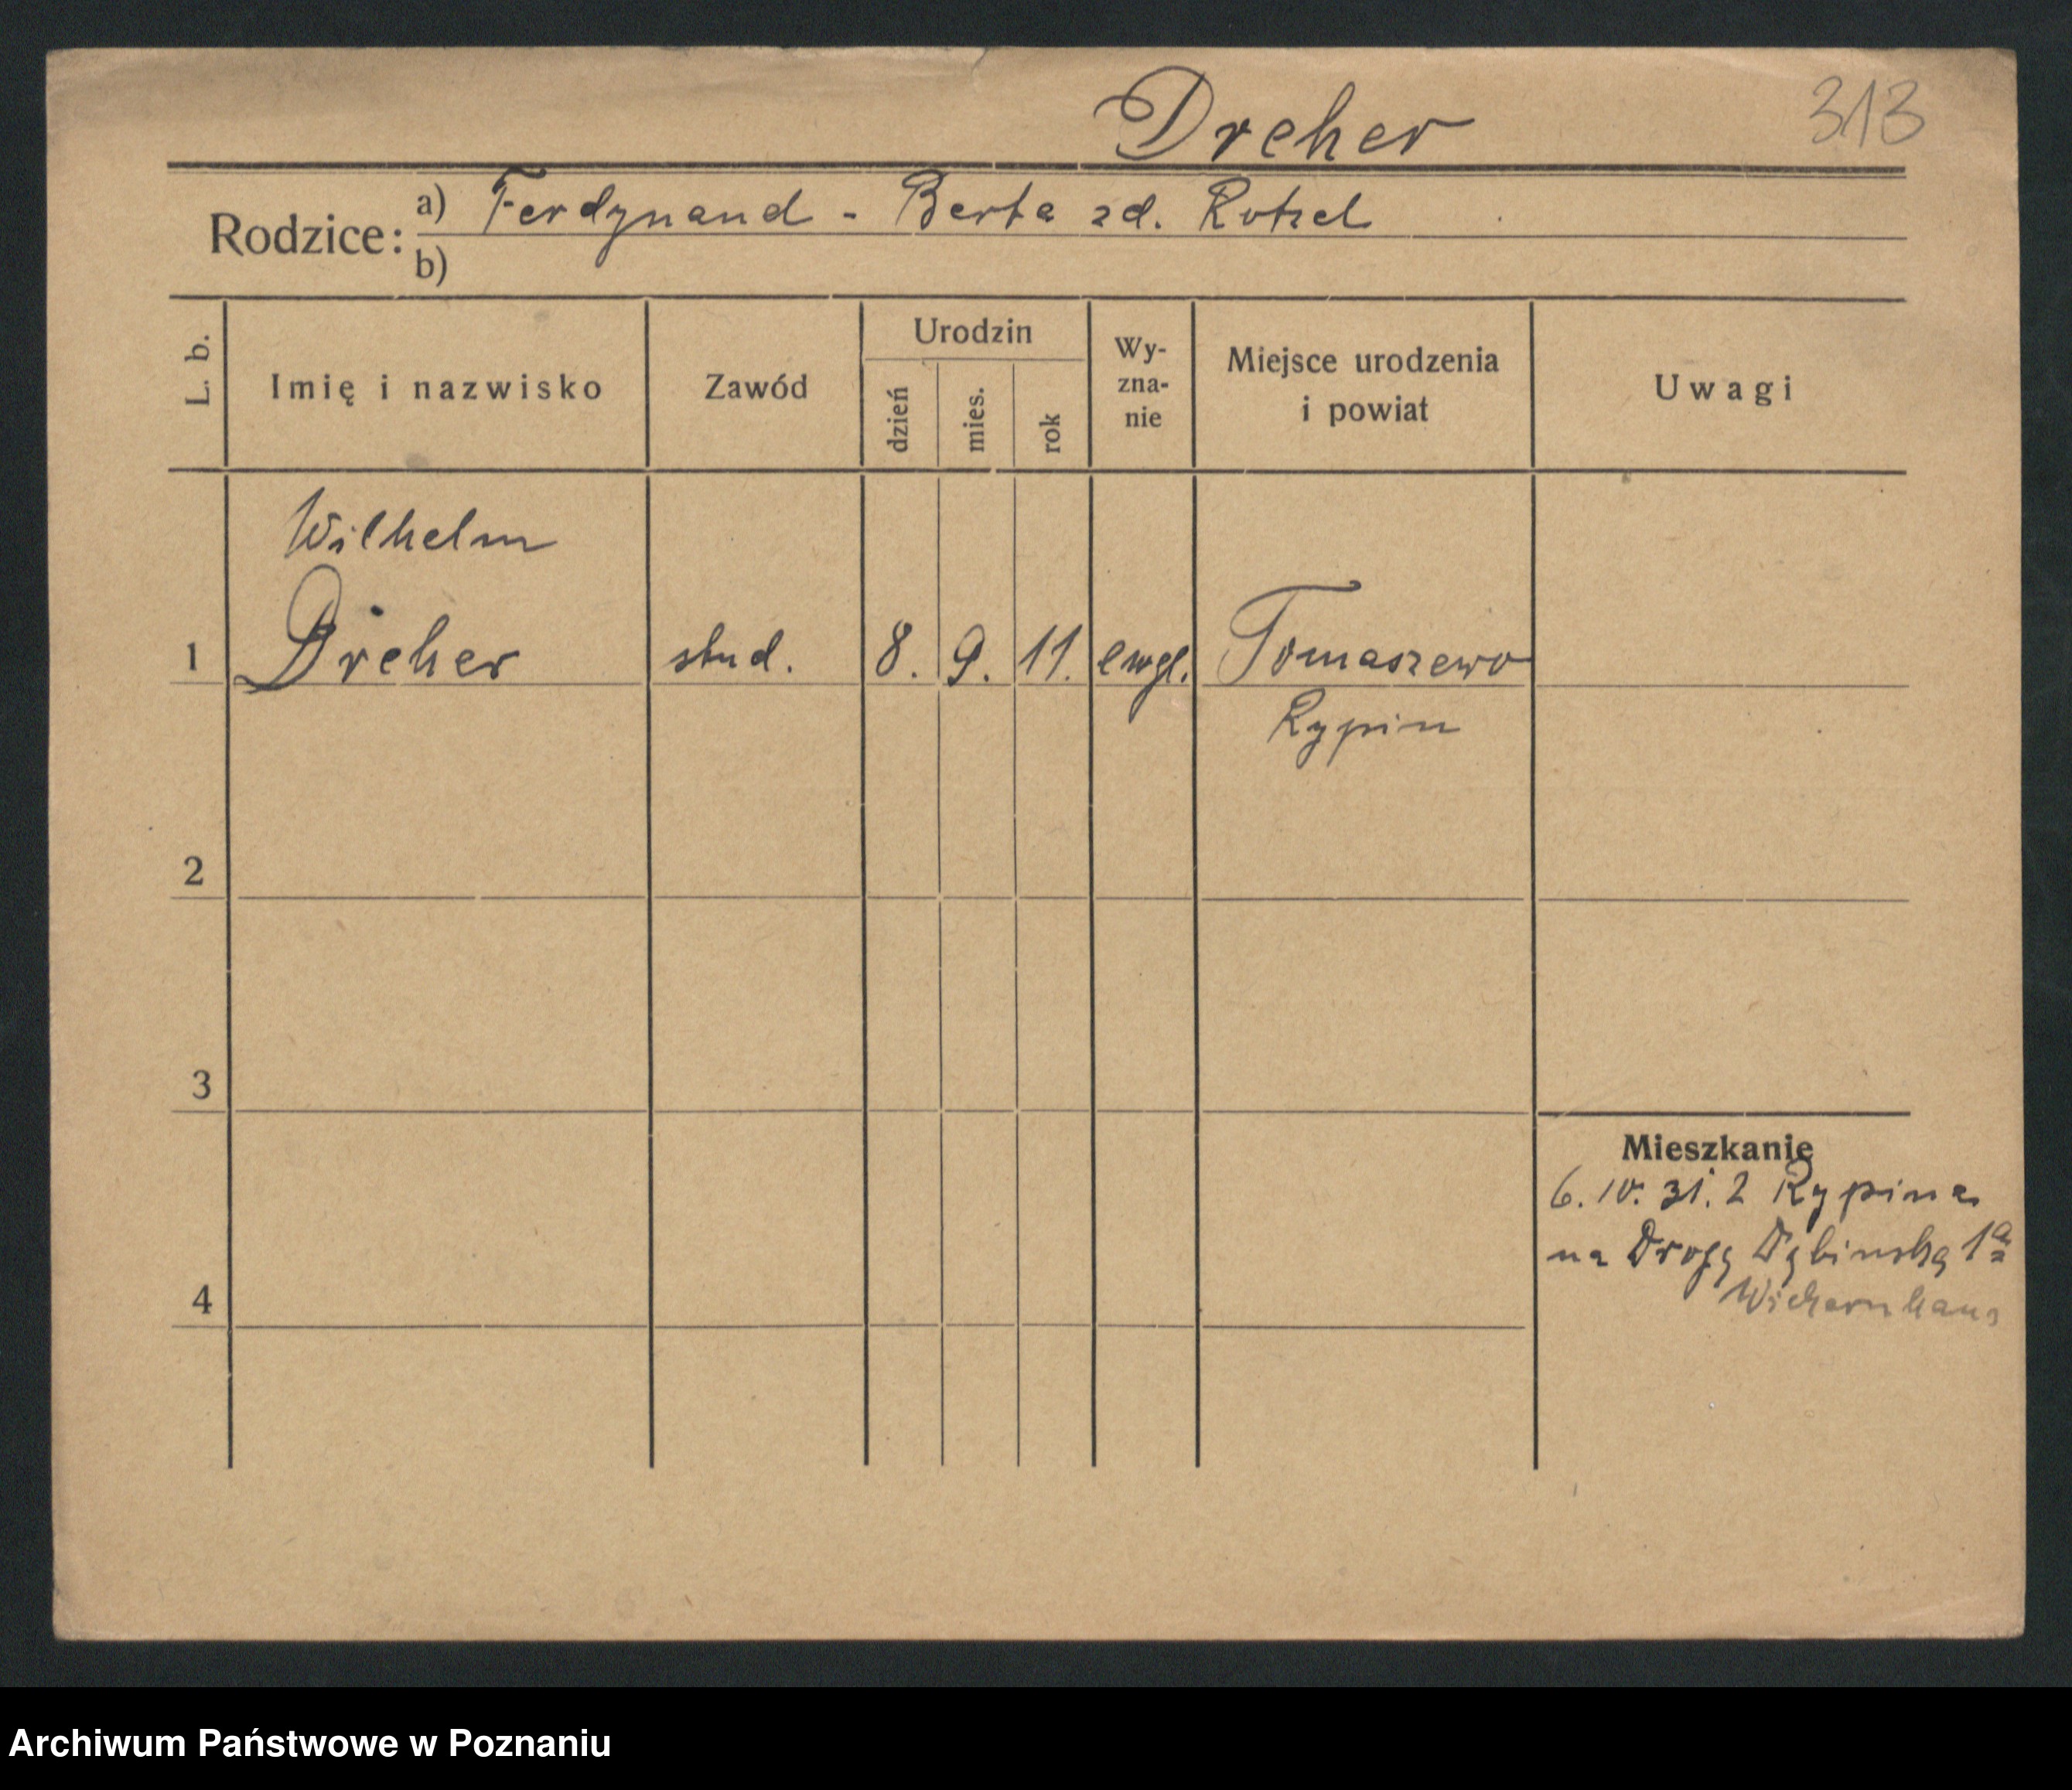 Dreher
313
Rodzice:
a) Ferdynand - Berta zd. Rotzel
b)
L. b.
Imię i nazwisko
Zawód
Urodzin
dzień
mies.
rok
Wy-
zna-
nie
Miejsce urodzenia
i powiat
Uwagi
Wilhelm
1 Dreher stud. 8. 9. 11. ewgl. Tomaszewo
Rypin
2
3
Mieszkanie
6. 10. 31. z Rypina
na Drogę Dębińską 1a
Wichernhaus
4
Archiwum Państwowe w Poznaniu